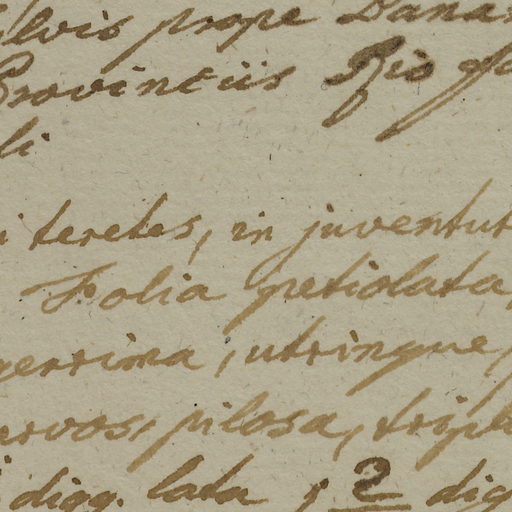 lvis prope Bana
Provinciis Rio Ja
li
i teretes, in juventut
Folia petiolata,
gerrima, utrinque,
ervos, pilosa, tripl
digg. lata, 2 dig